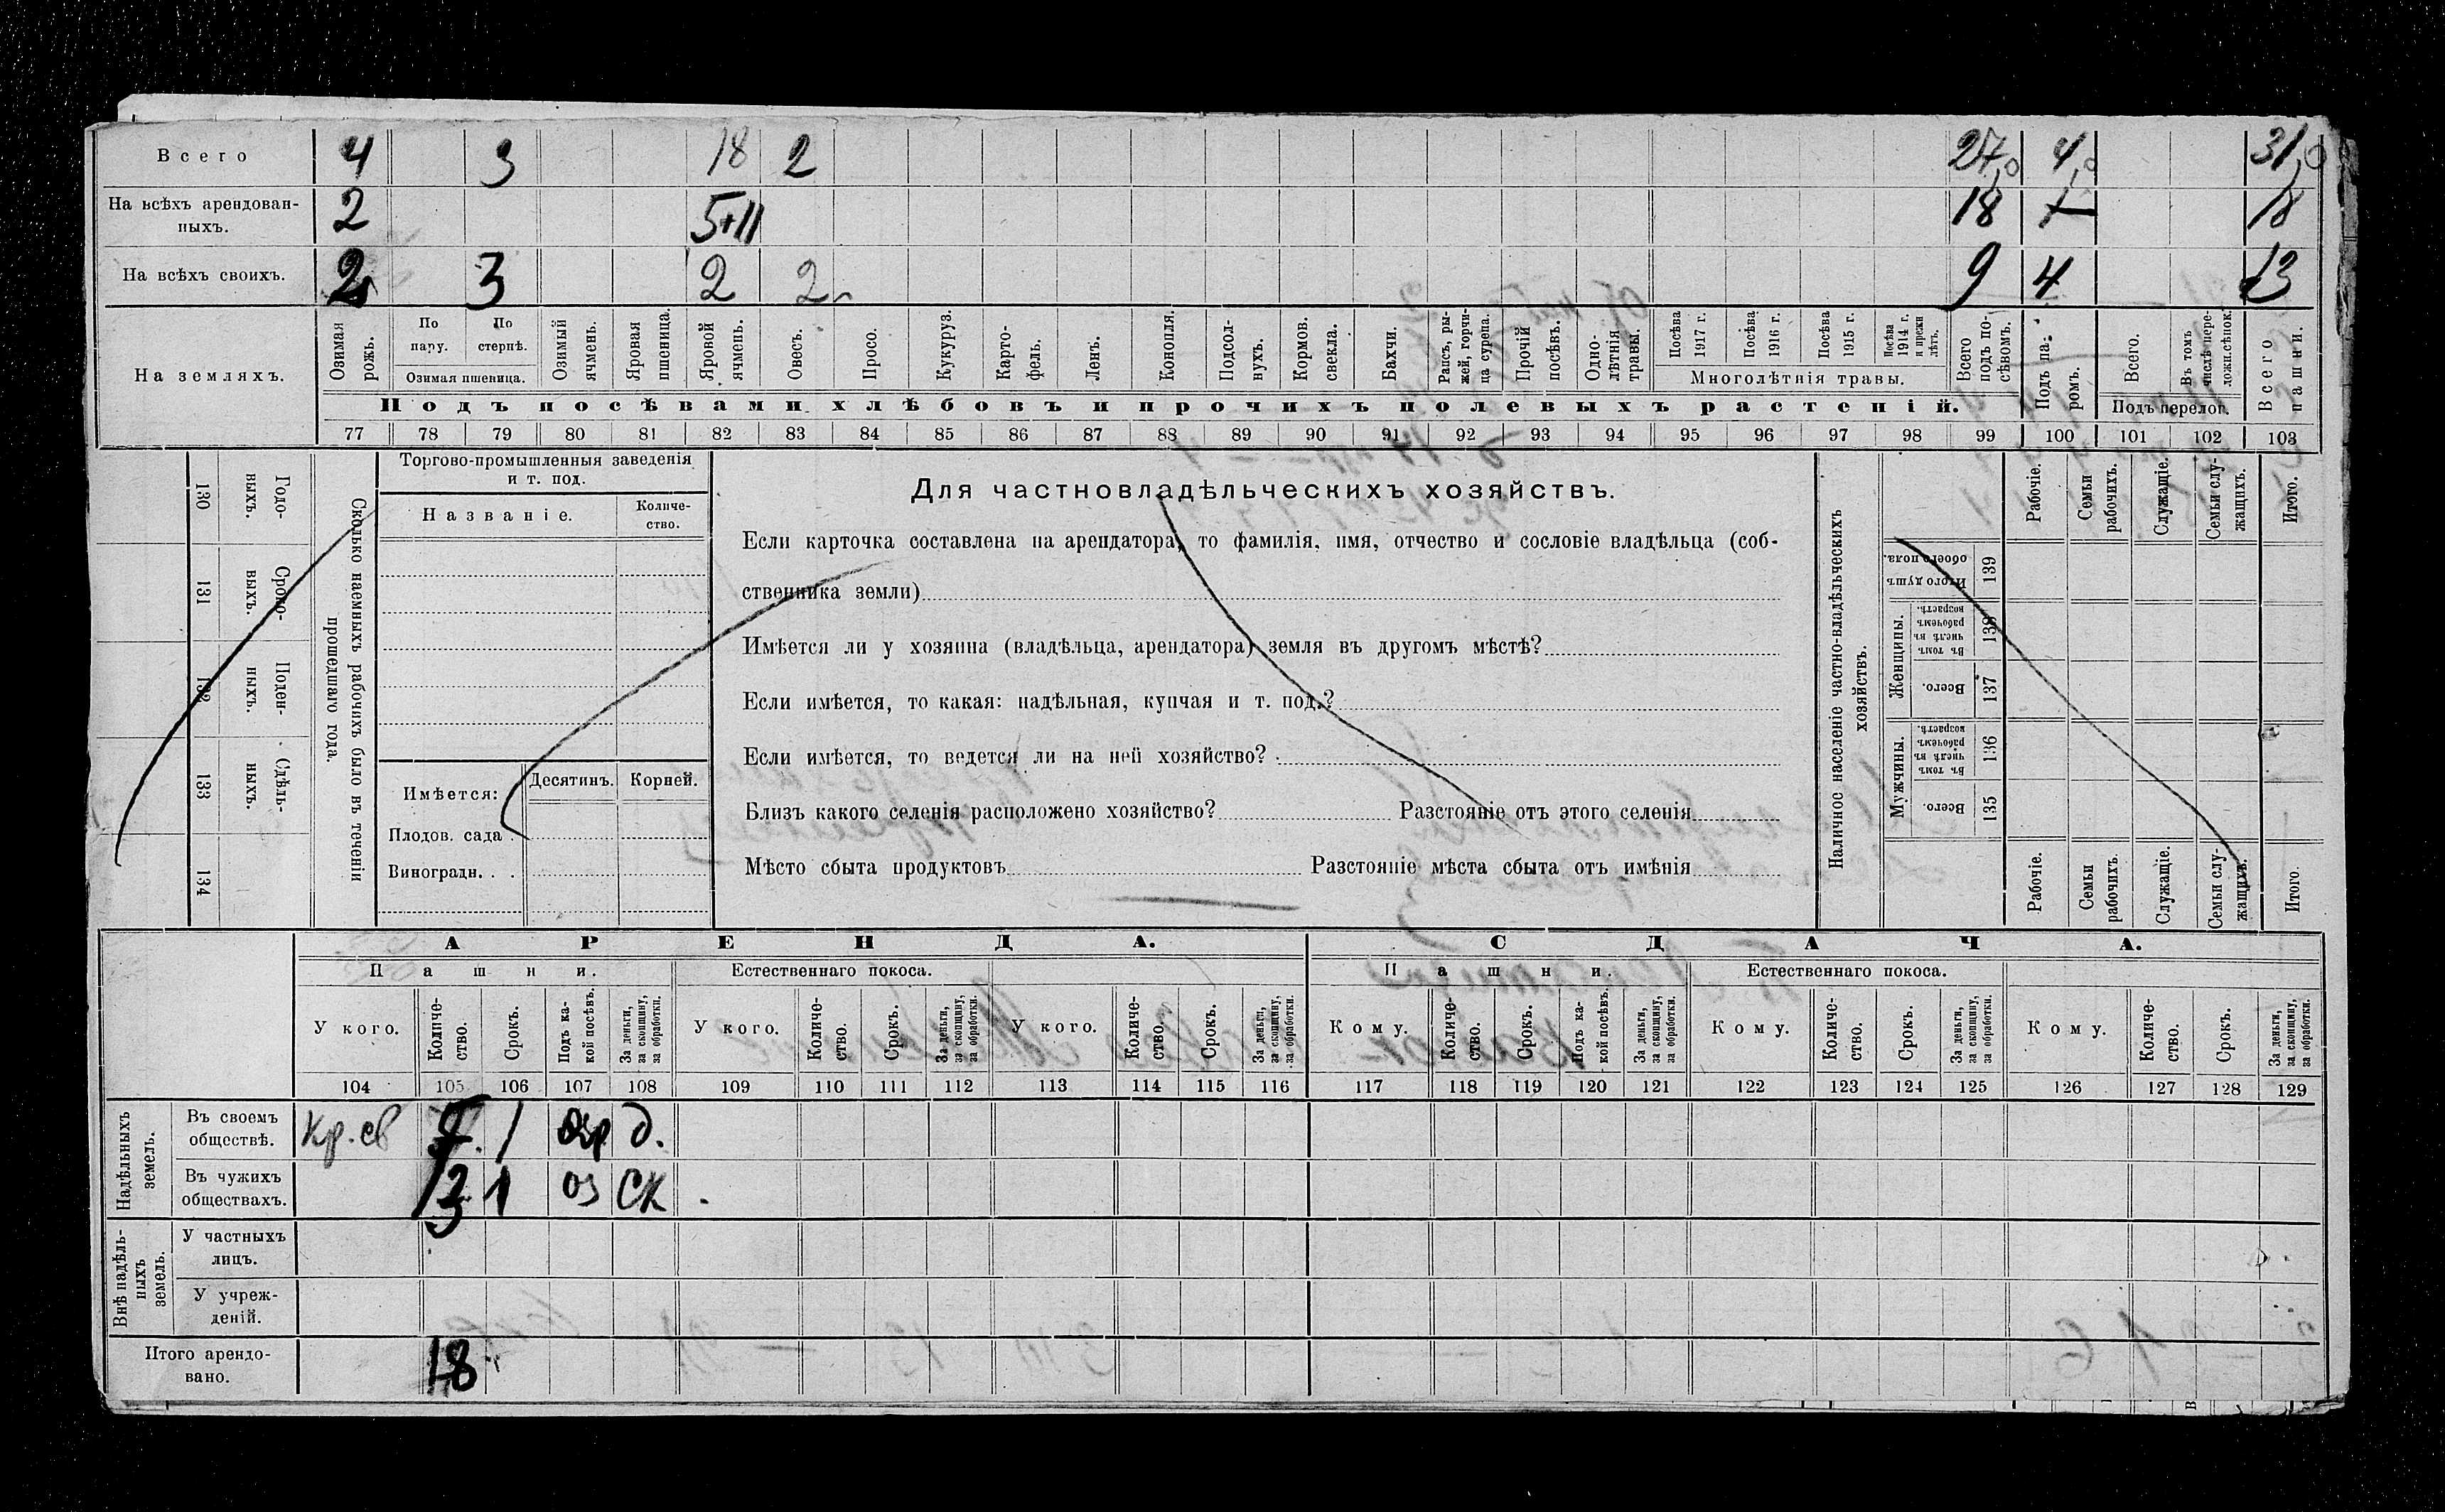 Всего 4 3 18 2 27,0 4,0 31,0
На всѣхъ арендован-
ныхъ. 2 5+11 18 18
На всѣхъ своихъ. 2 3 2 2 9 4 13
На земляхъ.
Озимая рожь.
По пару.
По стернѣ.
Озимая пшеница.
Озимый ячмень.
Яровая пшеница.
Яровой ячмень.
Овесъ.
Просо.
Кукуруз.
Карто-
фель.
Ленъ.
Конопля.
Подсол-
нухъ.
Кормов.
свекла.
Бахчи.
Рапсъ, ры-
жей, горчи-
ца сурепа.
Прочій
посѣвъ.
Одно-
лѣтнія
травы.
Посѣва
1917 г.
Посѣва
1916 г.
Посѣва
1915 г.
Посѣва
1914 г.
и прежн
лѣтъ.
Многолѣтнія травы.
Всего
подъ по-
сѣвомъ.
Подъ па-
ромъ.
Всего.
Въ томъ
числѣ пере-
ложн.сѣнок.
Подъ перелог.
Всего
пашни.
Подъ посѣвами хлѣбовъ и прочихъ полевыхъ растеній.
77 78 79 80 81 82 83 84 85 86 87 88 89 90 91 92 93 94 95 96 97 98 99 100 101 102 103
Сколько наемныхъ рабочихъ было въ теченіи
прошедшаго года.
Годо-
выхъ.
130
Сроко-
выхъ.
131
Поден-
ныхъ.
132
Сдѣль-
ныхъ.
133
134
Торгово-промышленныя заведенія
и т. под.
Названіе.
Количе-
ство.
Имѣется:
Десятинъ.
Корней.
Плодов. сада .
Виноградн. . .
Для частновладѣльческихъ хозяйствъ.
Если карточка составлена на арендатора, то фамилія, имя, отчество и сословіе владѣльца (соб-
ственника земли)
Имѣется ли у хозяина (владѣльца, арендатора) земля въ другомъ мѣстѣ?
Если имѣется, то какая: надѣльная, купчая и т. под.?
Если имѣется, то ведется ли на ней хозяйство?
Близъ какого селенія расположено хозяйство? Разстояніе отъ этого селенія
Мѣсто сбыта продуктовъ Разстояніе мѣста сбыта отъ имѣнія
Наличное населеніе частно-владѣльческихъ
хозяйствъ.
Рабочіе.
Семьи
рабочихъ.
Служащіе.
Семьи слу-
жащихъ.
Итого.
Итого душъ
обоего пола.
139
Женщины.
Въ томъ
числѣ въ
рабочемъ
возрастѣ.
138
Всего.
137
Мужчины.
Въ томъ
числѣ въ
рабочемъ
возрастѣ.
136
Всего.
135
Рабочіе.
Семьи
рабочихъ.
Служащіе.
Семьи слу-
жащихъ.
Итого.
АРЕНДА. СДАЧА.
Пашни. Естественнаго покоса. Пашни. Естественнаго покоса.
У кого.
Количе-
ство.
Срокъ.
Подъ ка-
кой посѣвъ.
За деньги,
за скопщину,
за обработки.
У кого.
Количе-
ство.
Срокъ.
За деньги,
за скопщину,
за обработки.
У кого.
Количе-
ство.
Срокъ.
За деньги,
за скопщину,
за обработки.
Кому.
Количе-
ство.
Срокъ.
Подъ ка-
кой посѣвъ.
За деньги,
за скопщину,
за обработки.
Кому.
Количе-
ство.
Срокъ.
За деньги,
за скопщину,
за обработки.
Кому.
Количе-
ство.
Срокъ.
За деньги,
за скопщину,
за обработки.
104 105 106 107 108 109 110 111 112 113 114 115 116 117 118 119 120 121 122 123 124 125 126 127 128 129
Надѣльныхъ
земель.
Въ своемъ
обществѣ. кр. св 1 д.
Въ чужихъ
обществахъ. 13 1 оз ск
Внѣ надѣль-
ныхъ
земель.
У частныхъ
лицъ.
У учреж-
деній.
Итого арендо-
вано. 18